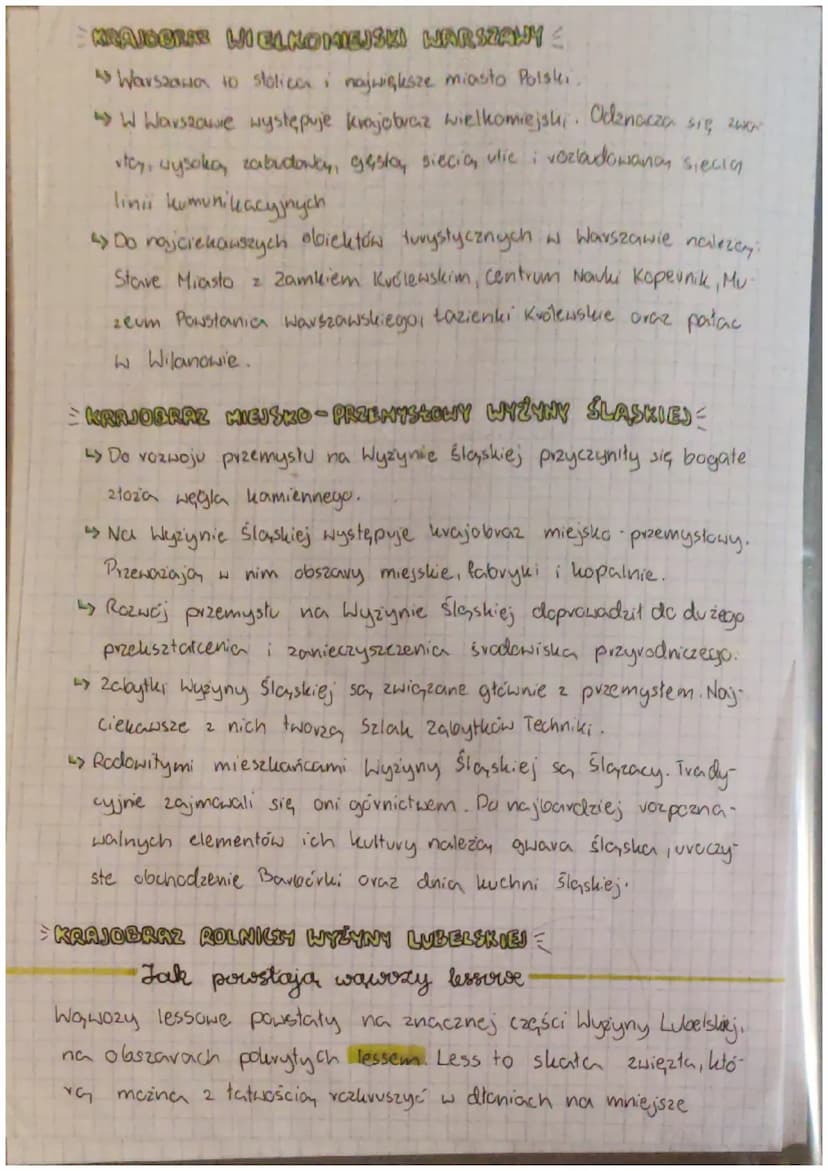 KRAJOBRAZ WIELKOMIEJSKI WARSZAWY
↳ Warszawa to stolica i największe miasto Polski.
↳ W Warszawie występuje krajobraz wielkomiejski. Odznacza się zwar
rtą, wysoką zabudową, gęstą siecią ulic i rozbudowaną siecią
linii komunikacyjnych
↳ Do najciekawszych obiektów turystycznych w Warszawie należą:
Stare Miasto z Zamkiem Królewskim, Centrum Nauki Kopernik, Mu-
zeum Powstania Warszawskiego, Łazienki Królewskie oraz pałac
w Wilanowie.
KRAJOBRAZ MIEJSKO-PRZEMYSŁOWY WYŻYNY ŚLĄSKIEJ
↳ Do rozwoju przemysłu na Wyżynie Śląskiej przyczyniły się bogate
złoża węgla kamiennego.
↳ Na Wyżynie Śląskiej występuje krajobraz miejsko-przemysłowy.
Przeważają w nim obszary miejskie, fabryki i kopalnie.
↳ Rozwój przemysłu na Wyżynie Śląskiej doprowadził do dużego
przekształcenia i zanieczyszczenia środowiska przyrodniczego.
↳ Zabytki Wyżyny Śląskiej są związane głównie z przemysłem. Naj-
ciekawsze z nich tworzą Szlak Zabytków Techniki.
↳ Rodowitymi mieszkańcami Wyżyny Śląskiej są Ślązacy. Trady-
cyjnie zajmowali się oni górnictwem. Do najbardziej rozpozna-
walnych elementów ich kultury należą gwara śląska, uroczy-
ste obchodzenie Barbórki oraz dnia kuchni śląskiej.
KRAJOBRAZ ROLNICZY WYŻYNY LUBELSKIEJ
Jak powstają wąwozy lessowe
Wąwozy lessowe powstały na znacznej części Wyżyny Lubelskiej,
na obszarach pokrytych lessem. Less to skała zwięzła, któ-
rą można z łatwością rozkruszyć w dłoniach na mniejsze